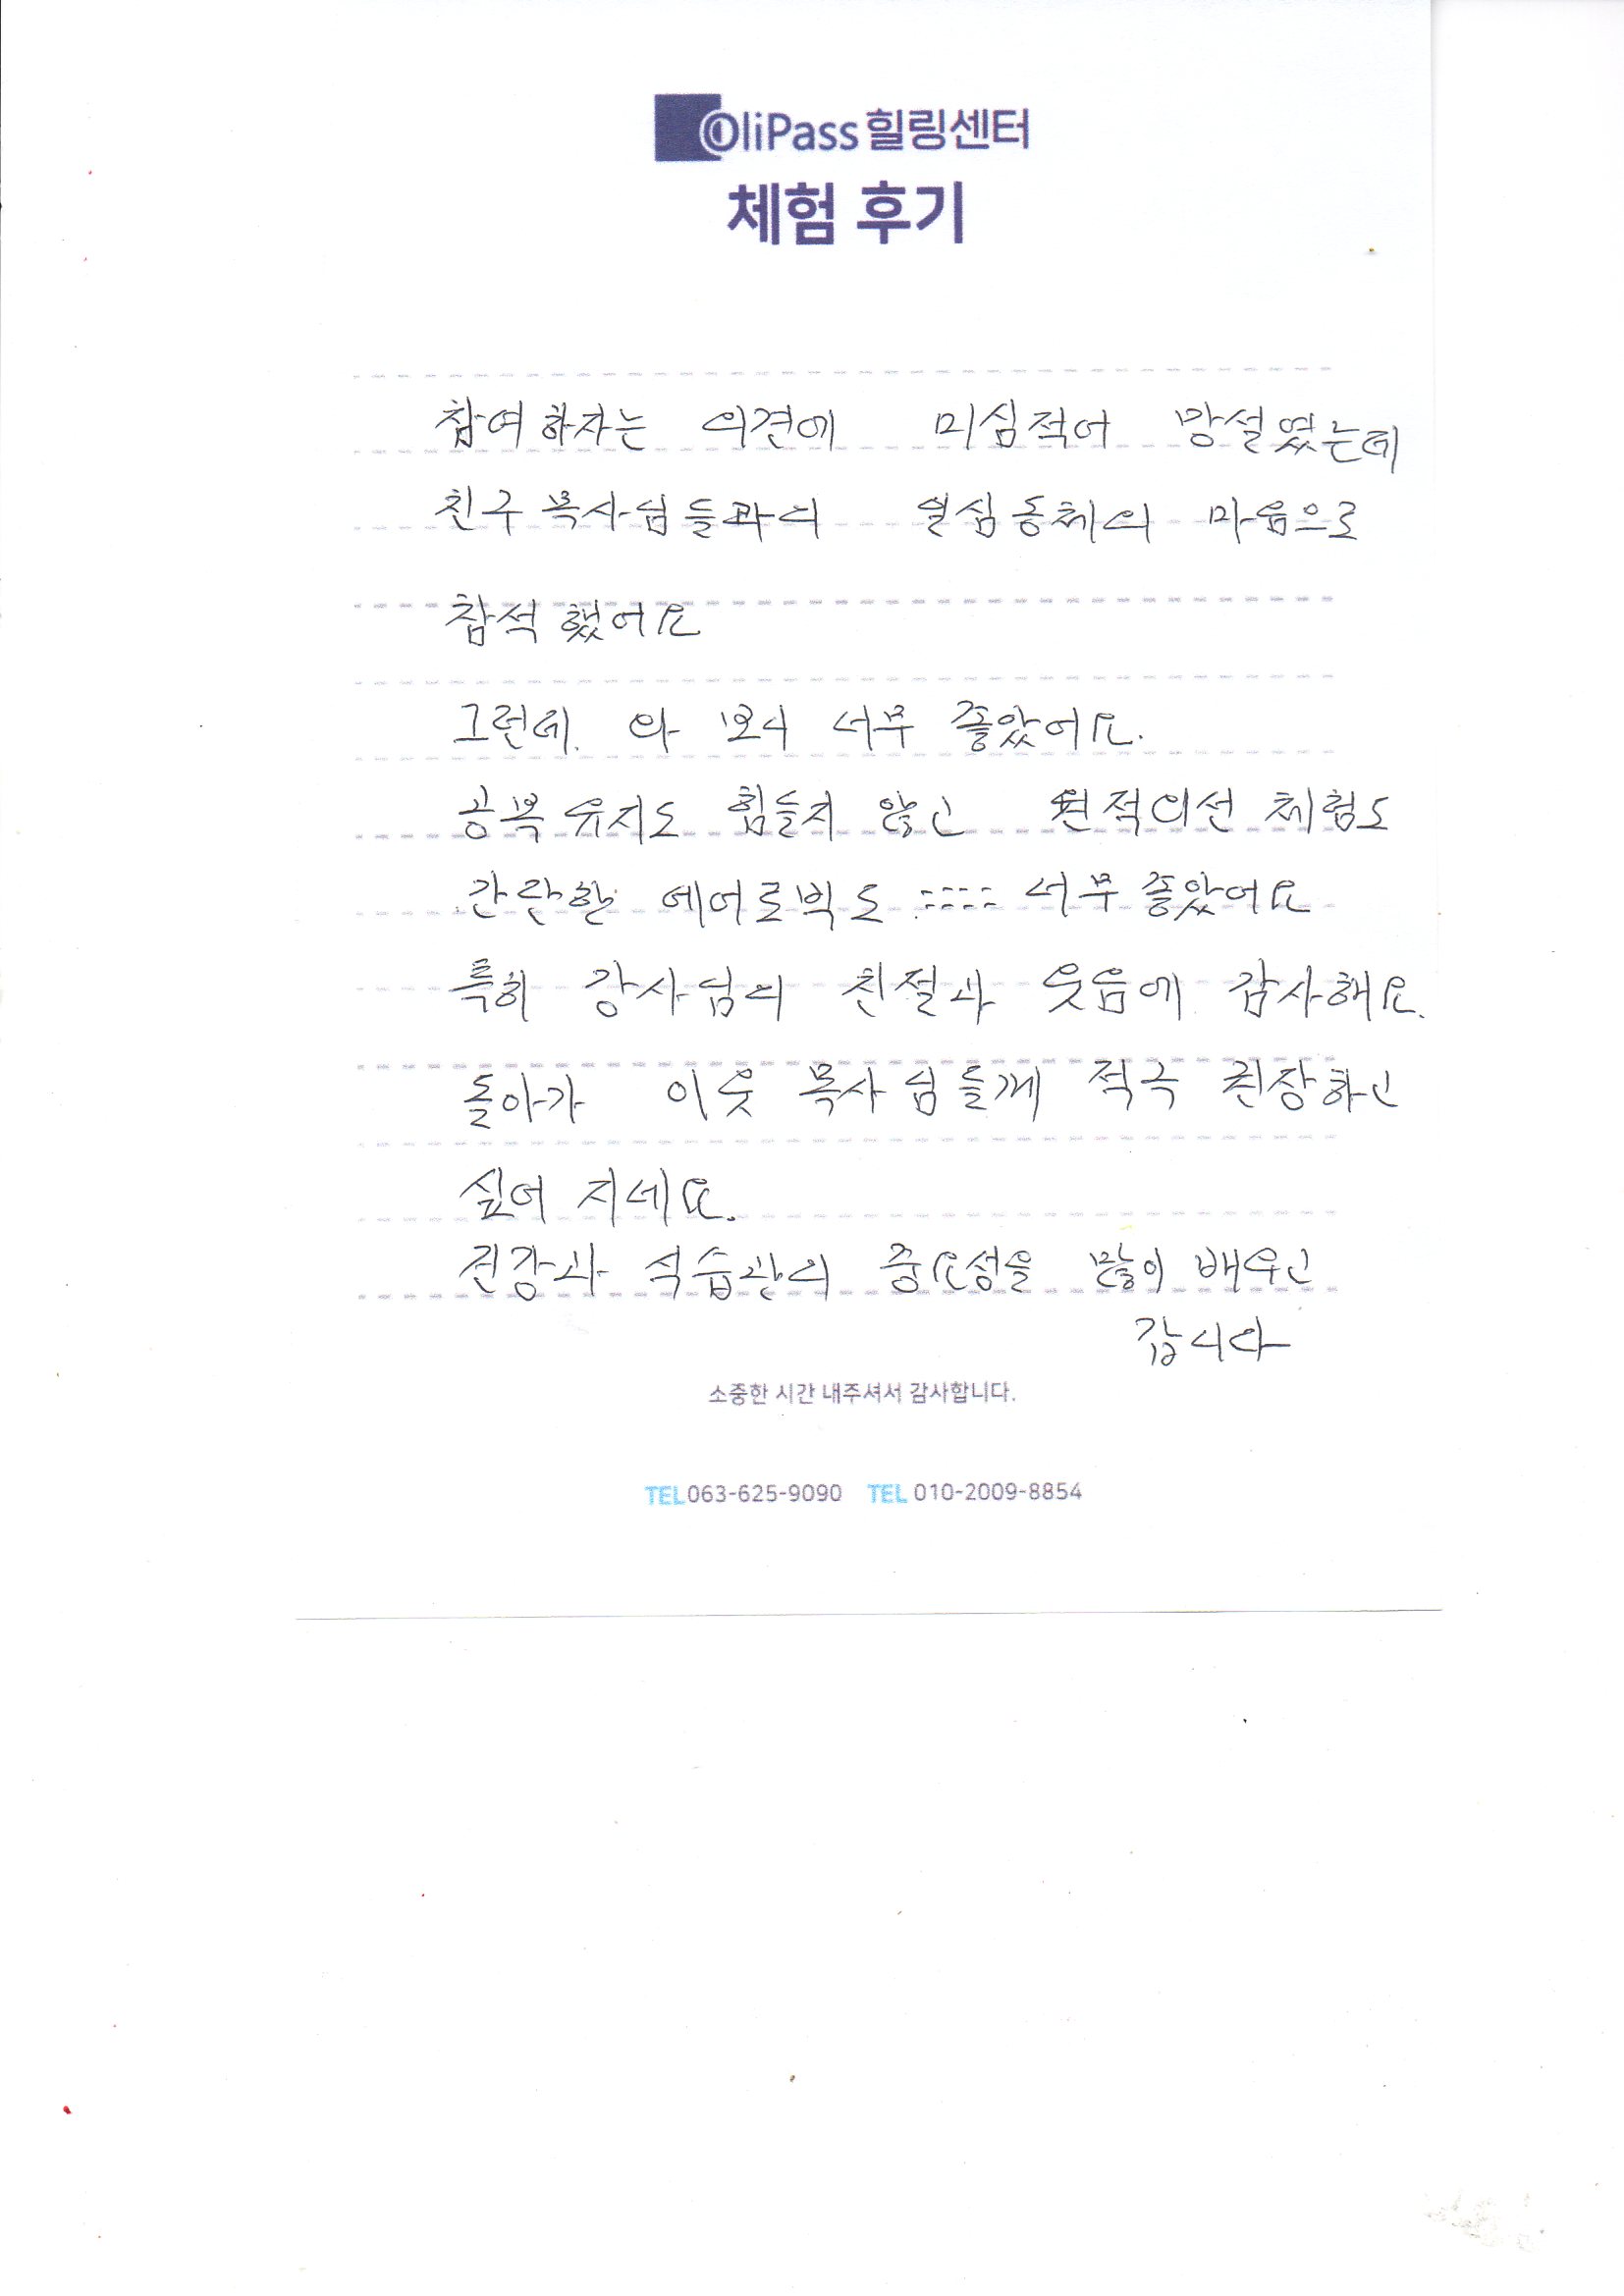 OliPass 힐링센터
체험 후기
참여하자는 의견에 미심적어 망설였는데
친구 목사님들과의 일심동체의 마음으로
참석했어요
그런데. 와 보니 너무 좋았어요.
공복유지도 힘들지 않고 원적외선 체험도
간단한 에어로빅도 ---- 너무 좋았어요
특히 강사님의 친절과 웃음에 감사해요.
돌아가 이웃 목사님들께 적극 권장하고
싶어 지네요.
건강과 식습관의 중요성을 많이 배우고
갑니다
소중한 시간 내주셔서 감사합니다.
TEL 063-625-9090 TEL 010-2009-8854